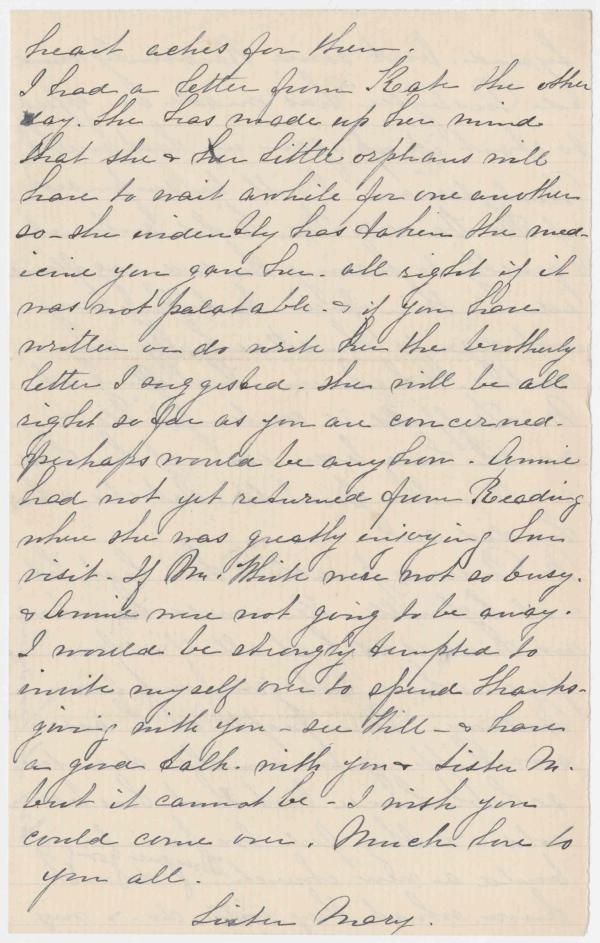 heart aches for them.
I had a letter from Kate the other
day. She has made up her mind
that she & her little orphans will
have to wait awhile for one another
so - she evidently has taken the med-
icine you gave her. all right if it
was not palatable. & if you have
written or do write her the brotherly
letter I suggested. she will be all
right so far as you are concerned.
perhaps would be anyhow. Annie
had not yet returned from Reading
where she was greatly enjoying her
visit. If Mr. White were not so busy.
& Annie were not going to be away.
I would be strongly tempted to
invite myself over to spend Thanks-
giving with you - see Will - & have
a good talk. with you & Sister M.
but it cannot be - I wish you
could come over. Much love to
you all.
Sister Mary.